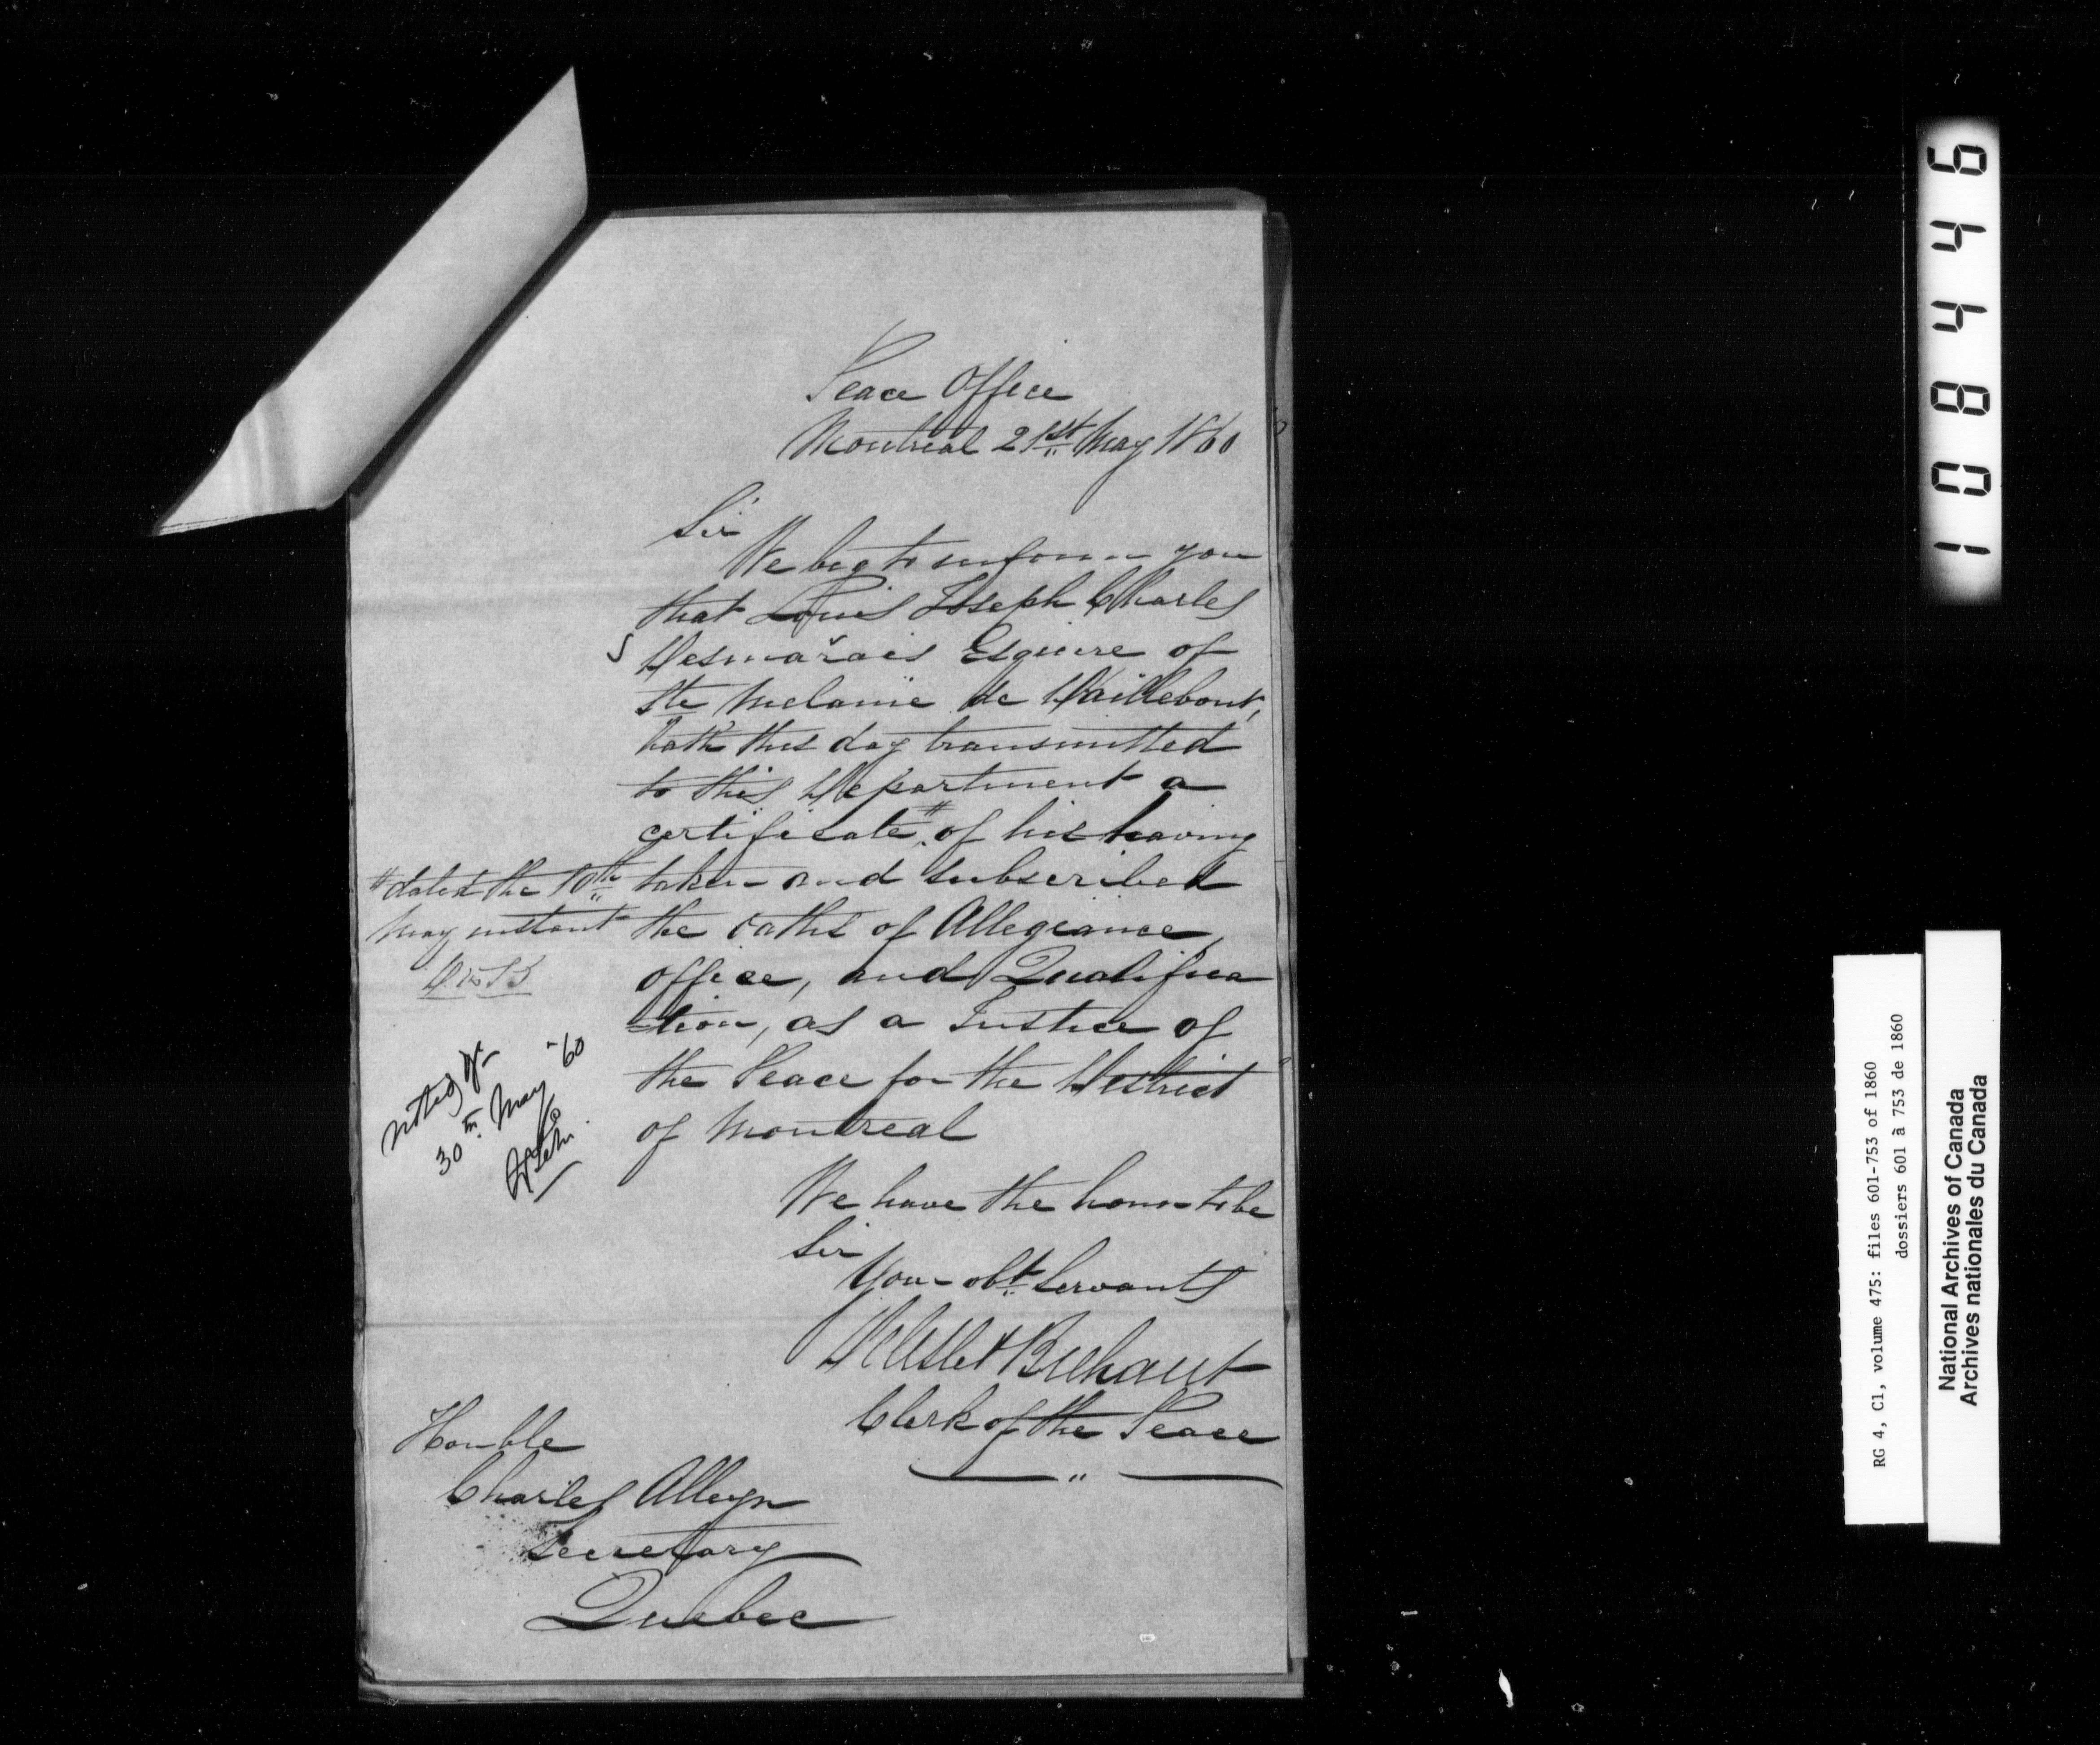 Peace Office
Montreal 21st May 1860
Sir
We beg to inform you
that Louis Joseph Charles
Desmarais Esquire of
Ste Melanie de Daillebout,
hath this day transmitted
to this Department a
certificate # of his having
# dated the 10th
May instant
D & B
taken and subscribed
the oaths of Allegiance,
office, and Qualifica
-tion, as a Justice of
the Peace for the District
of Montreal
noted
30th May -60
We have the honor to be
Sir
Your obt Servants
Delisle & Brehaut
Clerk of the Peace
Honble
Charles Alleyn
Secretary
Quebec
108446
RG 4, C1, volume 475: files 601-753 of 1860
dossiers 601 à 753 de 1860
National Archives of Canada
Archives nationales du Canada